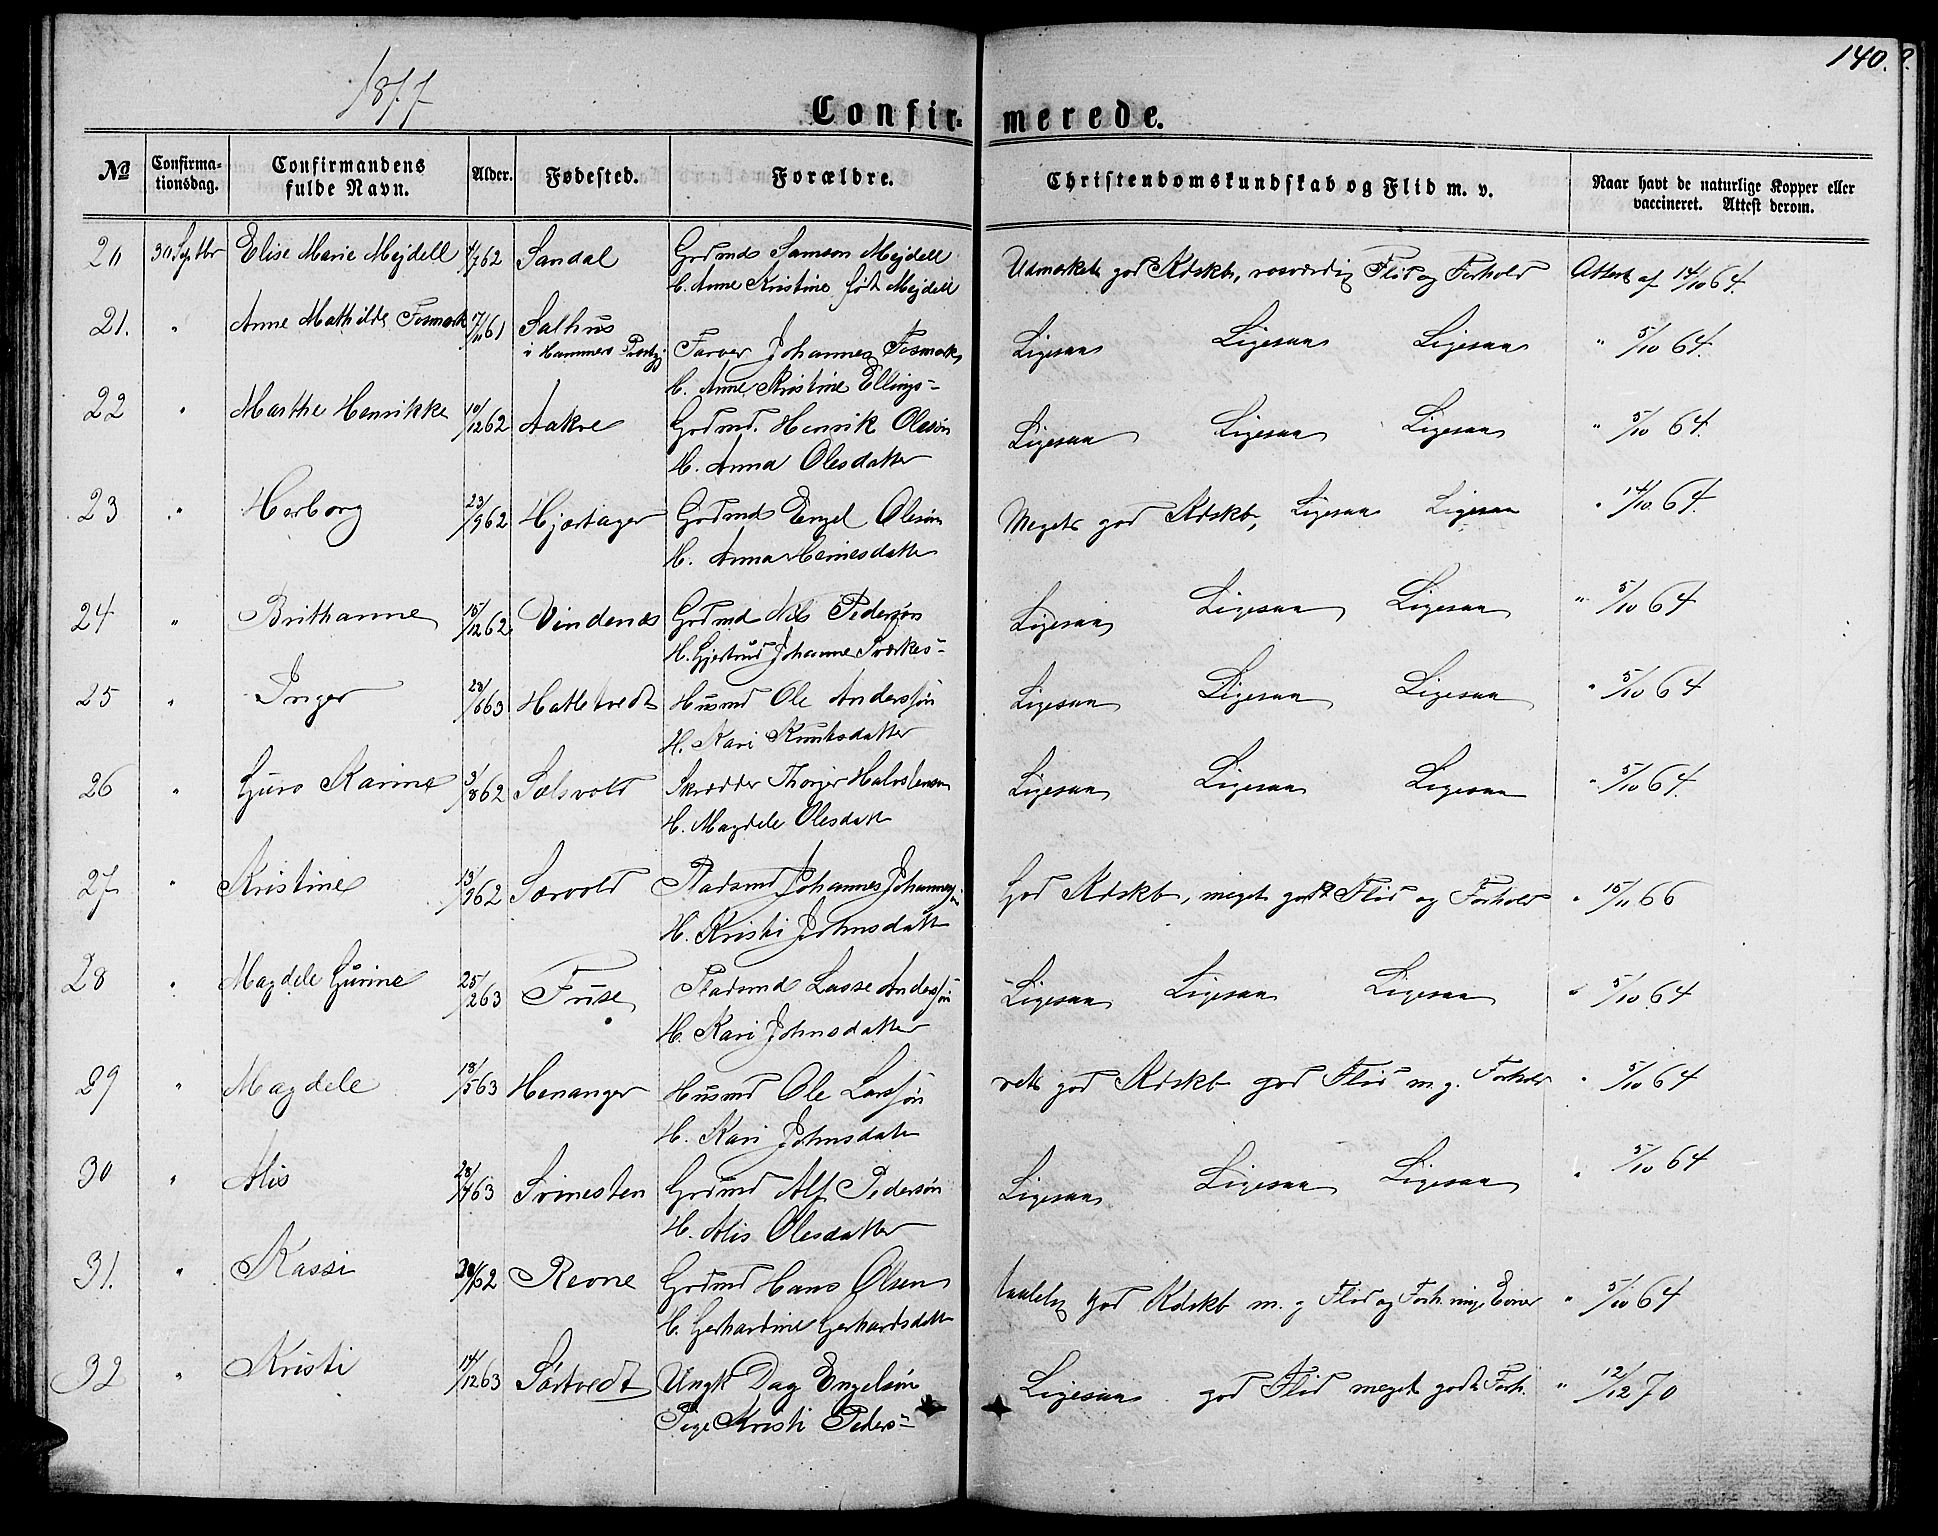 140.
1877
Confirmerede.
No Confirmationsdag. Confirmandens fulde Navn. Alder. Fødested. Forældre. Christendomskundskab og Flid m. v. Naar havt de naturlige Kopper eller vaccineret. Attest derom.
20 30 Septbr Elise Marie Mejdell 62 Sandal Grdmd Samson Mejdell Udmærket god Kdskb, rosværdig Flid og Forhold Attest af 14/10 64.
H. Anne Kristine født Mejdell
21. " Anne Mathilde Fosmark 17/11 61 Salhus Farver Johannes Fosmark Ligesaa Ligesaa Ligesaa " 5/10 64.
i Hammers Prstgj H. Anne Kristine Ellings=
22 " Marthe Henrikke 10/12 62 Aakre Grdmd. Henrik Olesøn Ligesaa Ligesaa Ligesaa " 5/10 64.
H. Anna Olesdatter
23 " Herborg 23/9 62 Hjortager Grdmd Engel Olesøn Meget god Kdskb, Ligesaa Ligesaa " 14/10 64.
H. Anna
24 " Brithanne 15/12 62 Vindenæs Grdmd Nils Pedersøn Ligesaa Ligesaa Ligesaa " 5/10 64
H. Gjertrud Johanne Sværkes=
25 " Inger 28/6 63 Hatletvedt Husmd Ole Anderssøn Ligesaa Ligesaa Ligesaa " 5/10 64
H. Kari Knutsdatter
26 " Guro Karine 3/8 62 Sælsvold Skrædder Thorger Halvstensen Ligesaa Ligesaa Ligesaa " 5/10 64.
H. Magdele Olesdatt
27 " Kristine 13/9 62 Særvold Pladsmd Johannes Johannes God Kdskb, meget godt Flid og Forhold " 15/11 66
H. Kristi Johnsdatt
28 " Magdele Gurine 25/2 63 Fuse Pladsmd Lasse Anderssøn Ligesaa Ligesaa Ligesaa " 5/10 64
H. Kari Johnsdatter
29 " Magdele 18/5 63 Henanger Husmd Ole Larssøn ret god Kdskb god Flid m. g. Forhold " 5/10 64
H. Kari Johnsdatt
30 " Alis 28/4 63 Svinesten Grdmd Alf Pedersøn Ligesaa Ligesaa Ligesaa " 5/10 64
H. Alis Olesdatter
31. " Kassi 62 Revne Grdmd Hans Olsen god Kdskb m. g Flid og Forh. ringe Evner " 5/10 64
H. Gerhardine Gerhardsdatt
32 " Kristi 14/12 63 Sørtvedt Ungk Dag Engelsøn Ligesaa god Flid meget godt Forh. " 12/12 70
Pige Kristi Peders=